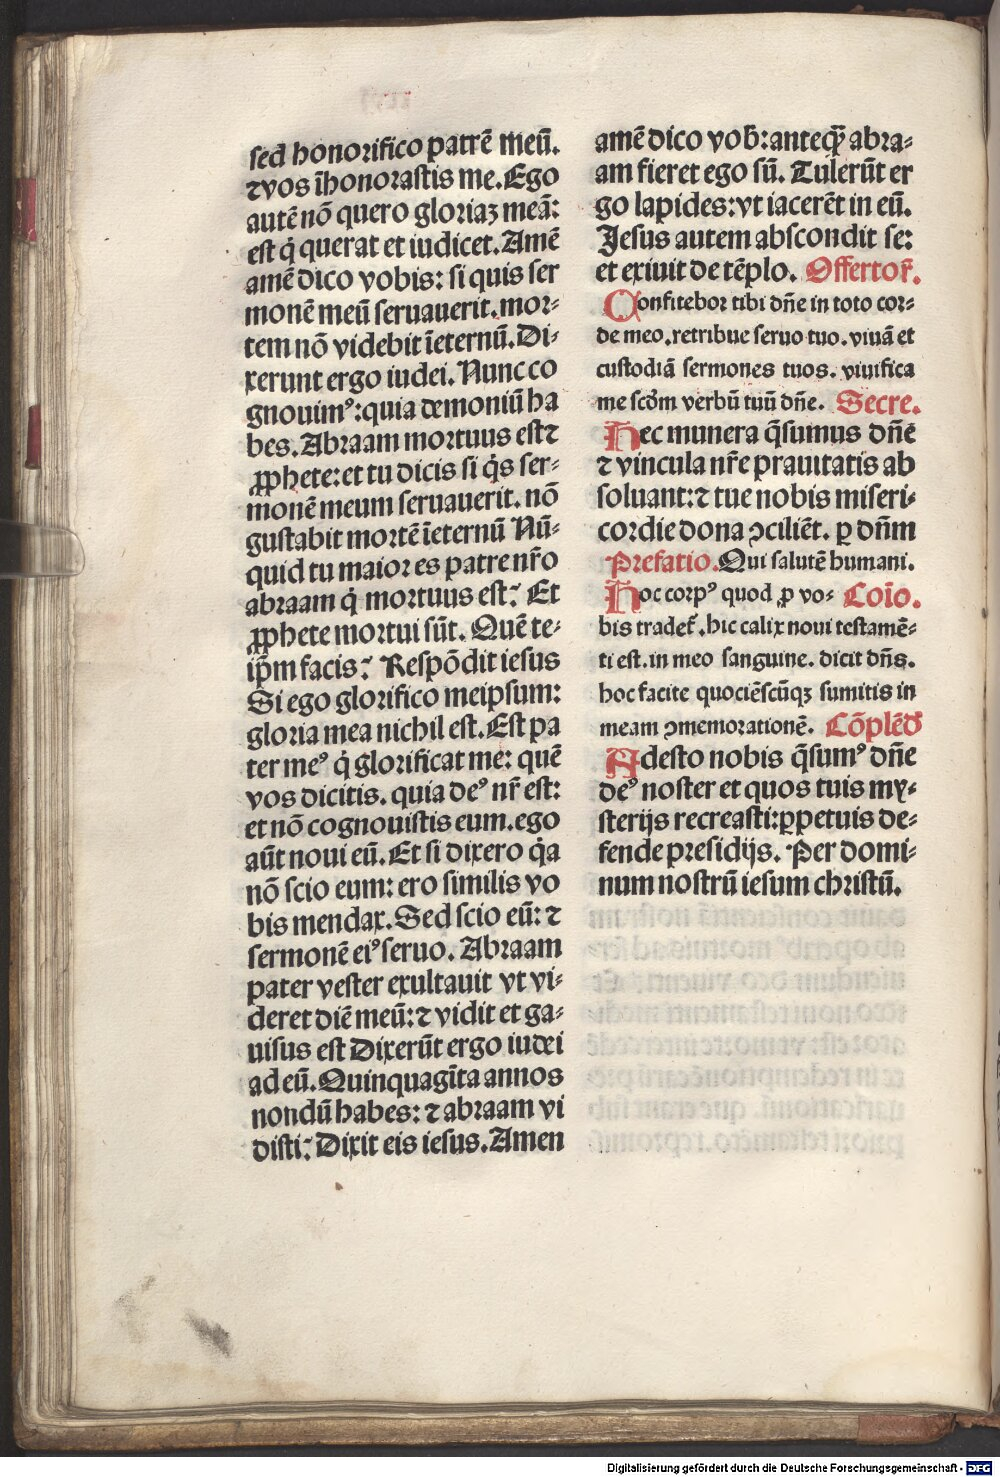 sed honorifico patrē meū.
⁊ vos īhonorastis me. Ego
autē nō quero gloriaꝫ meā:
est q̇ querat et iudicet. Amē
amē dico vobis: si quis ser
monē meū seruauerit. mor⸗
tem nō videbit īeternū. Di⸗
xerunt ergo iudei. Nunc co
gnouimꝰ: quia demoniū ha
bes. Abraam mortuus est ⁊
ꝓphete: et tu dicis si q̇s ser⸗
monē meum seruauerit. nō
gustabit mortē īeternū Nū⸗
quid tu maior es patre nr̄o
abraam q̇ mortuus est? Et
ꝓphete mortui sūt. Quē te⸗
ip̄m facis? Respōdit iesus
Si ego glorifico meipsum:
gloria mea nichil est. Est pa
ter meꝰ q̇ glorificat me: quē
vos dicitis. quia deꝰ nr̄ est:
et nō cognouistis eum. ego
aūt noui eū. Et si dixero q̇a
nō scio eum: ero similis vo
bis mendax. Sed scio eū: ⁊
sermonē eiꝰ seruo. Abraam
pater vester exultauit vt vi⸗
deret diē meū: ⁊ vidit et ga⸗
uisus est Dixerūt ergo iudei
ad eū. Quinquagīta annos
nondū habes: ⁊ abraam vi
disti? Dixit eis iesus. Amen
amē dico vob̄: anteqꝫ̄ abra⸗
am fieret ego sū. Tulerūt er
go lapides: vt iacerēt in eū.
Jesus autem abscondit se:
et exiuit de tēplo. Offertor̄.
Confitebor tibi dn̄e in toto cor⸗
de meo. retribue seruo tuo. viuā et
custodiā sermones tuos. viuifica
me scd̓m verbū tuū dn̄e. Secre.
Hec munera q̄sumus dn̄e
⁊ vincula nr̄e prauitatis ab
soluant: ⁊ tue nobis miseri⸗
cordie dona ↄciliēt. ꝑ dn̄m
Prefatio. Qui salutē humani.
Hoc corpꝰ quod ꝓ vo⸗ Coīo.
bis tradet᷑. hic calix noui testamē⸗
ti est. in meo sanguine. dicit dn̄s.
hoc facite quociēscūqꝫ sumitis in
meam ↄmemorationē. Cōplēd̓
Adesto nobis q̄sumꝰ dn̄e
deꝰ noster et quos tuis my⸗
sterijs recreasti: ꝑpetuis de⸗
fende presidijs. Per domi⸗
num nostrū iesum christū.
Digitalisierung gefördert durch die Deutsche Forschungsgemeinschaft - DFG